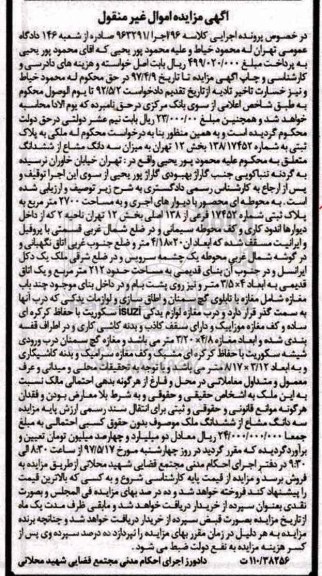 آگهی مزایده اموال غیر منقول
در خصوص پرونده اجرایی کلاسه ۹۶ اجرا/۹۶۳۲۹۱ صادره از شعبه ۱۴۶ دادگاه
عمومی تهران له محمود خیاط و علیه محمود پور یحیی که آقای محمود پور یحیی
به پرداخت مبلغ ۴۹۹/۰۲۰/۰۰۰ ریال بابت اصل خواسته و هزینه های دادرسی و
کارشناسی و چاپ آگهی مزایده تا تاریخ ۹۷/۴/۹ در حق محکوم له محمود خیاط
و نیز خسارت تاخیر تادیه از تاریخ تقدیم دادخواست ۹۲/۵/۲ تا یوم الوصول محکوم
به طبق شاخص اعلامی از سوی بانک مرکزی در حق نامبرده که یوم الادا محاسبه
خواهد شد و همچنین مبلغ ۲۳/۰۰۰/۰۰۰ ریال بابت نیم عشر دولتی در حق دولت
محکوم گردیده است و به همین منظور بنا به درخواست محکوم له ملکی به پلاک
ثبتی به شماره ۱۳۸/۱۷۴۵۲ بخش ۱۲ تهران به میزان سه دانگ مشاع از ششدانگ
متعلق به محکوم علیه محمود پور یحیی واقع در : تهران خیابان خاوران نرسیده
به گردنه تنباکویی جنب گاراژ بهبودی گاراژ پور یحیی از سوی این اجرا توقیف و
پس از ارجاع به کارشناس رسمی دادگستری به شرح زیر توصیف و ارزیابی شده
است . به محوطه ای محصور با دیوار های آجری و به مساحت ۲۷۰۰ متر مربع به
پلاک ثبتی شماره ۱۷۴۵۲ فرعی از ۱۳۸ اصلی بخش ۱۲ تهران ناحیه ۲ که از داخل
دیوارها اندود کاری و کف محوطه سیمانی و در ضلع شمال غربی قسمتی با پروفیل
و ایرانیت مسقف شده که ابعاد آن ۴/۱۸×۲۰ متر و ضلع جنوب غربی اتاق نگهبانی و
در گوشه شمال غربی محوطه یک چشمه سرویس و در ضلع شرقی ملک یک دکل
ایرانسل و در جنوب آن بنای قدیمی به مساحت حدود ۲۱۲ متر مربع و یک اتاق
قدیمی به ابعاد ۴×۳/۵ متر و نیز روی پشت بام و در داخل بنای موجود چند باب
مغازه شامل مغازه با تابلوی گچ سمنان و اطاق سازی و لوازمات یدکی که درب آنها
به سمت گذر قرار دارد و درب مغازه لوازم یدکی isuzi سکوریت با حفاظ کرکره ای
ساده و کف مغازه موزاییک و دارای سقف کاذب و بدنه کاشی کاری و در اطراف قفسه
بندی شده و ابعاد مغازه ۴/۸×۳/۲۰ متر می باشد و مغازه گچ سمنان درب ورودی
شیشه سکوریت با حفاظ کرکره ای مشبک و کف مغازه سرامیک و بدنه کاشیکاری
و به ابعاد ۳/۱۲×۸/۱۷ متر می باشد و با توجه به تحقیقات محلی و میدانی و عرف
معمول و متداول معاملاتی در محل و فارغ از هرگونه بدهی احتمالی مالک نسبت
به این ملک به اشخاص حقیقی و حقوقی و به شرط بلا معارض بودن و فقدان
هرگونه موانع قانونی و حقوقی و ثبتی برای انتقال سند رسمی ارزش پایه مزایده
سه دانگ مشاع از ششدانگ ملک موصوف بدون حقوق کسبی احتمالی به مبلغ
جمعا ۲۴/۰۰۰/۰۰۰/۰۰۰ ریال معادل دو میلیارد و چهارصد میلیون تومان تعیین و
برآورد گردیده که مقرر گردید در روز چهارشنبه مورخ ۹۷/۵/۱۷ از ساعت ۸:۳۰ الی
۹:۳۰ در دفتر اجرای احکام مدنی مجتمع قضایی شهید محلاتی از طریق مزایده به
فروش برسد و مزایده از قیمت پایه کارشناسی شروع و به کسی که بالاترین قیمت
را پیشنهاد کند فروخته خواهد شد و ده در صد بهای مزایده فی المجلس و بصورت
نقدی بعنوان سپرده از خریدار دریافت خواهد شد و مابقی ظرف مدت یک ماه
از تاریخ مزایده بصورت قبض سپرده از خریدار دریافت خواهد شد و چنانچه برنده
مزایده به هر دلیل در زمان مقرر بهای مزایده را نپردازد ده درصد سپرده وی پس از
کسر هزینه مزایده به نفع دولت ضبط می شود .
۱۱۰/۳۸۲۵۶ ت دادورز اجرای احکام مدنی مجتمع قضایی شهید محلاتی